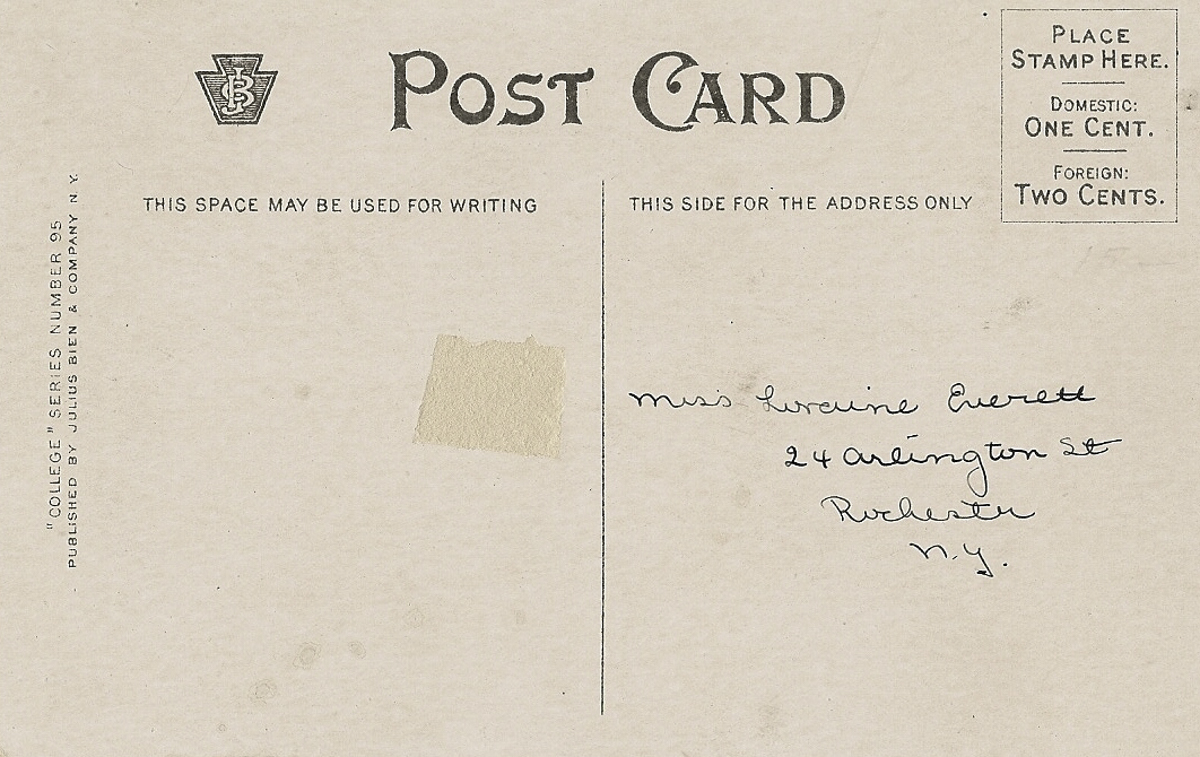 POST CARD
PLACE
STAMP HERE.
DOMESTIC:
ONE CENT.
FOREIGN:
TWO CENTS.
THIS SPACE MAY BE USED FOR WRITING
THIS SIDE FOR THE ADDRESS ONLY
"COLLEGE" SERIES NUMBER 95
PUBLISHED BY JULIUS BIEN & COMPANY N.Y.
Miss Loraine Everett
24 Arlington St
Rochester
N.Y.